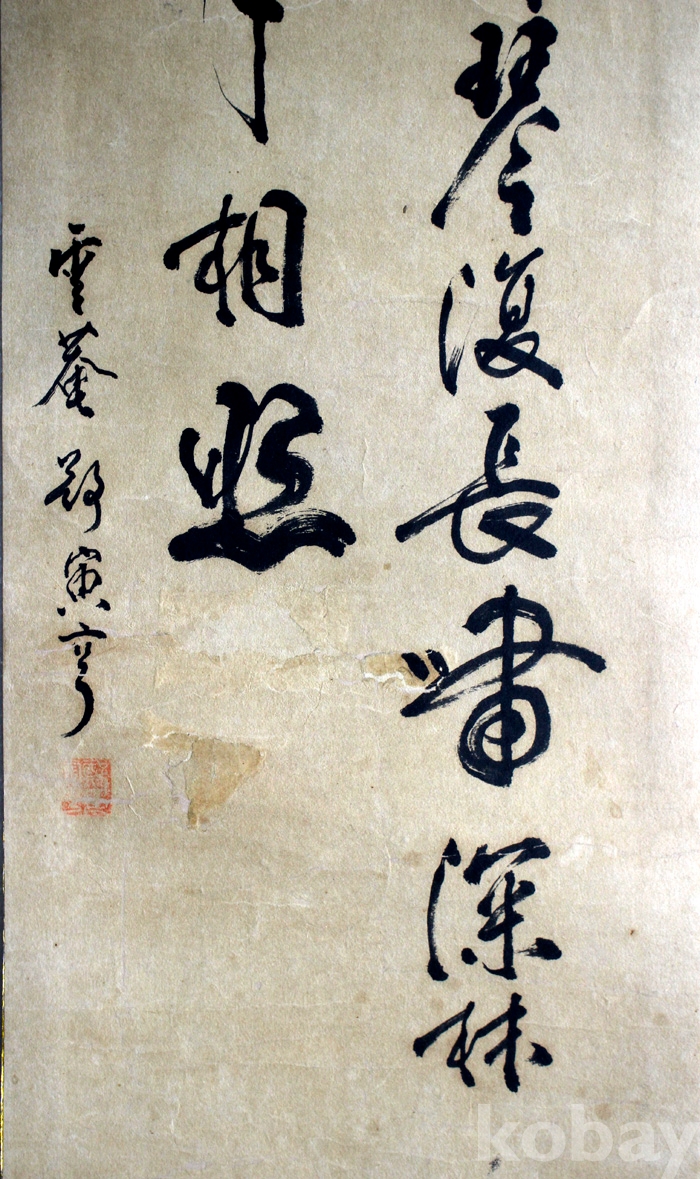 琴復長嘯深林
相照
雲菴 寅亨
kobay